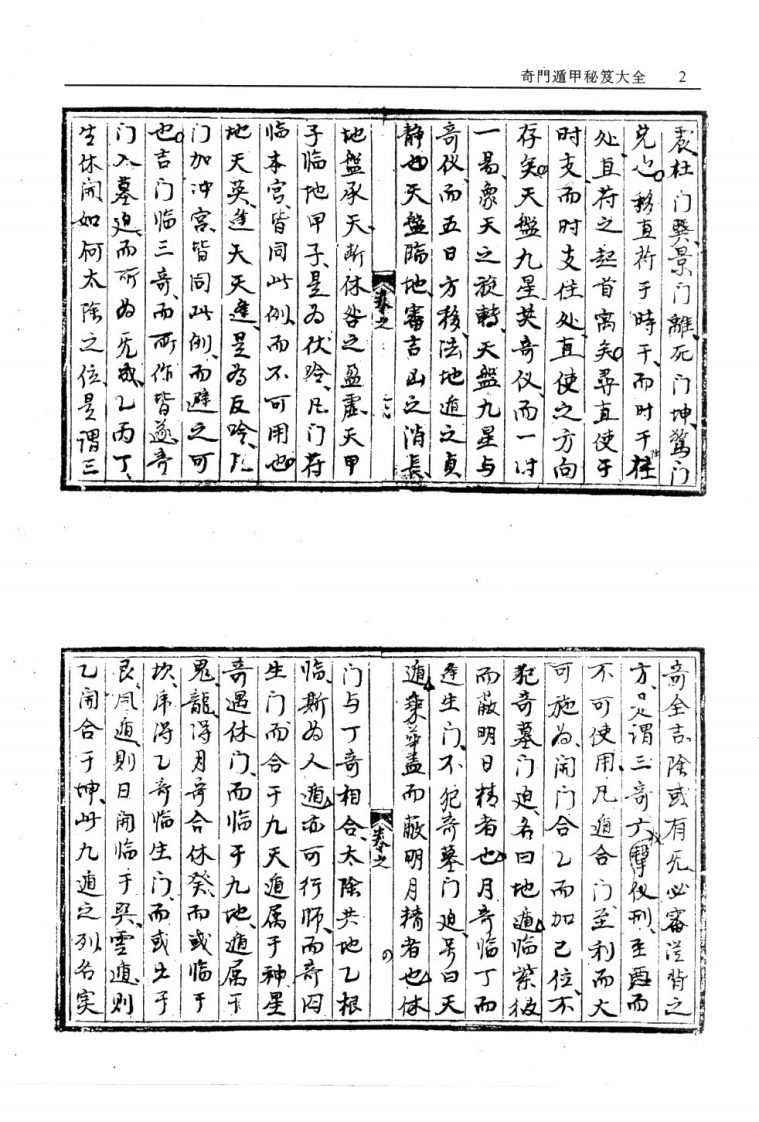 奇門遁甲秘笈大全 2
震杜门巽景门離死门坤驚门
兑也移直符于時干而时干
处直符之起首寓矣尋直使于
时支而时支住处直使之方向
存矣天盤九星共奇仪而一时
一易象天之旋轉天盤九星与
奇仪而五日方移法地遁之貞
静也天盤臨地審吉凶之消長
卷之
地盤承天断休咎之盈虚天甲
子临地甲子是为伏吟凡门符
临本宫皆同此例而不可用也
地天英逢天天逢是为反吟凡
门加冲宫皆同此例而避之可
也吉门临三奇而所作皆遂奇
门入墓迫而所为无成乙丙丁
生休開如何太陰之位是谓三
奇全吉陰或有无必審従背之
方只谓三奇六仪擊刑至凶而
不可使用凡遁合门至利而大
可施为開门合乙而加己位不
犯奇墓门迫名曰地遁临紫微
而蔽明日精者也月奇临丁而
逢生门不犯奇墓门迫号曰天
遁乗華盖而蔽明月精者也休
卷之
门与丁奇相合太陰共地乙根
临斯为人遁亦可行師而奇囚
生门而合于九天遁属于神星
奇遇休门而临于九地遁属于
鬼龍得月奇合休癸而或临于
坎虎得乙奇临生门而或出于
艮风遁则日開临于巽雲遁则
乙開合于坤此九遁之列名实